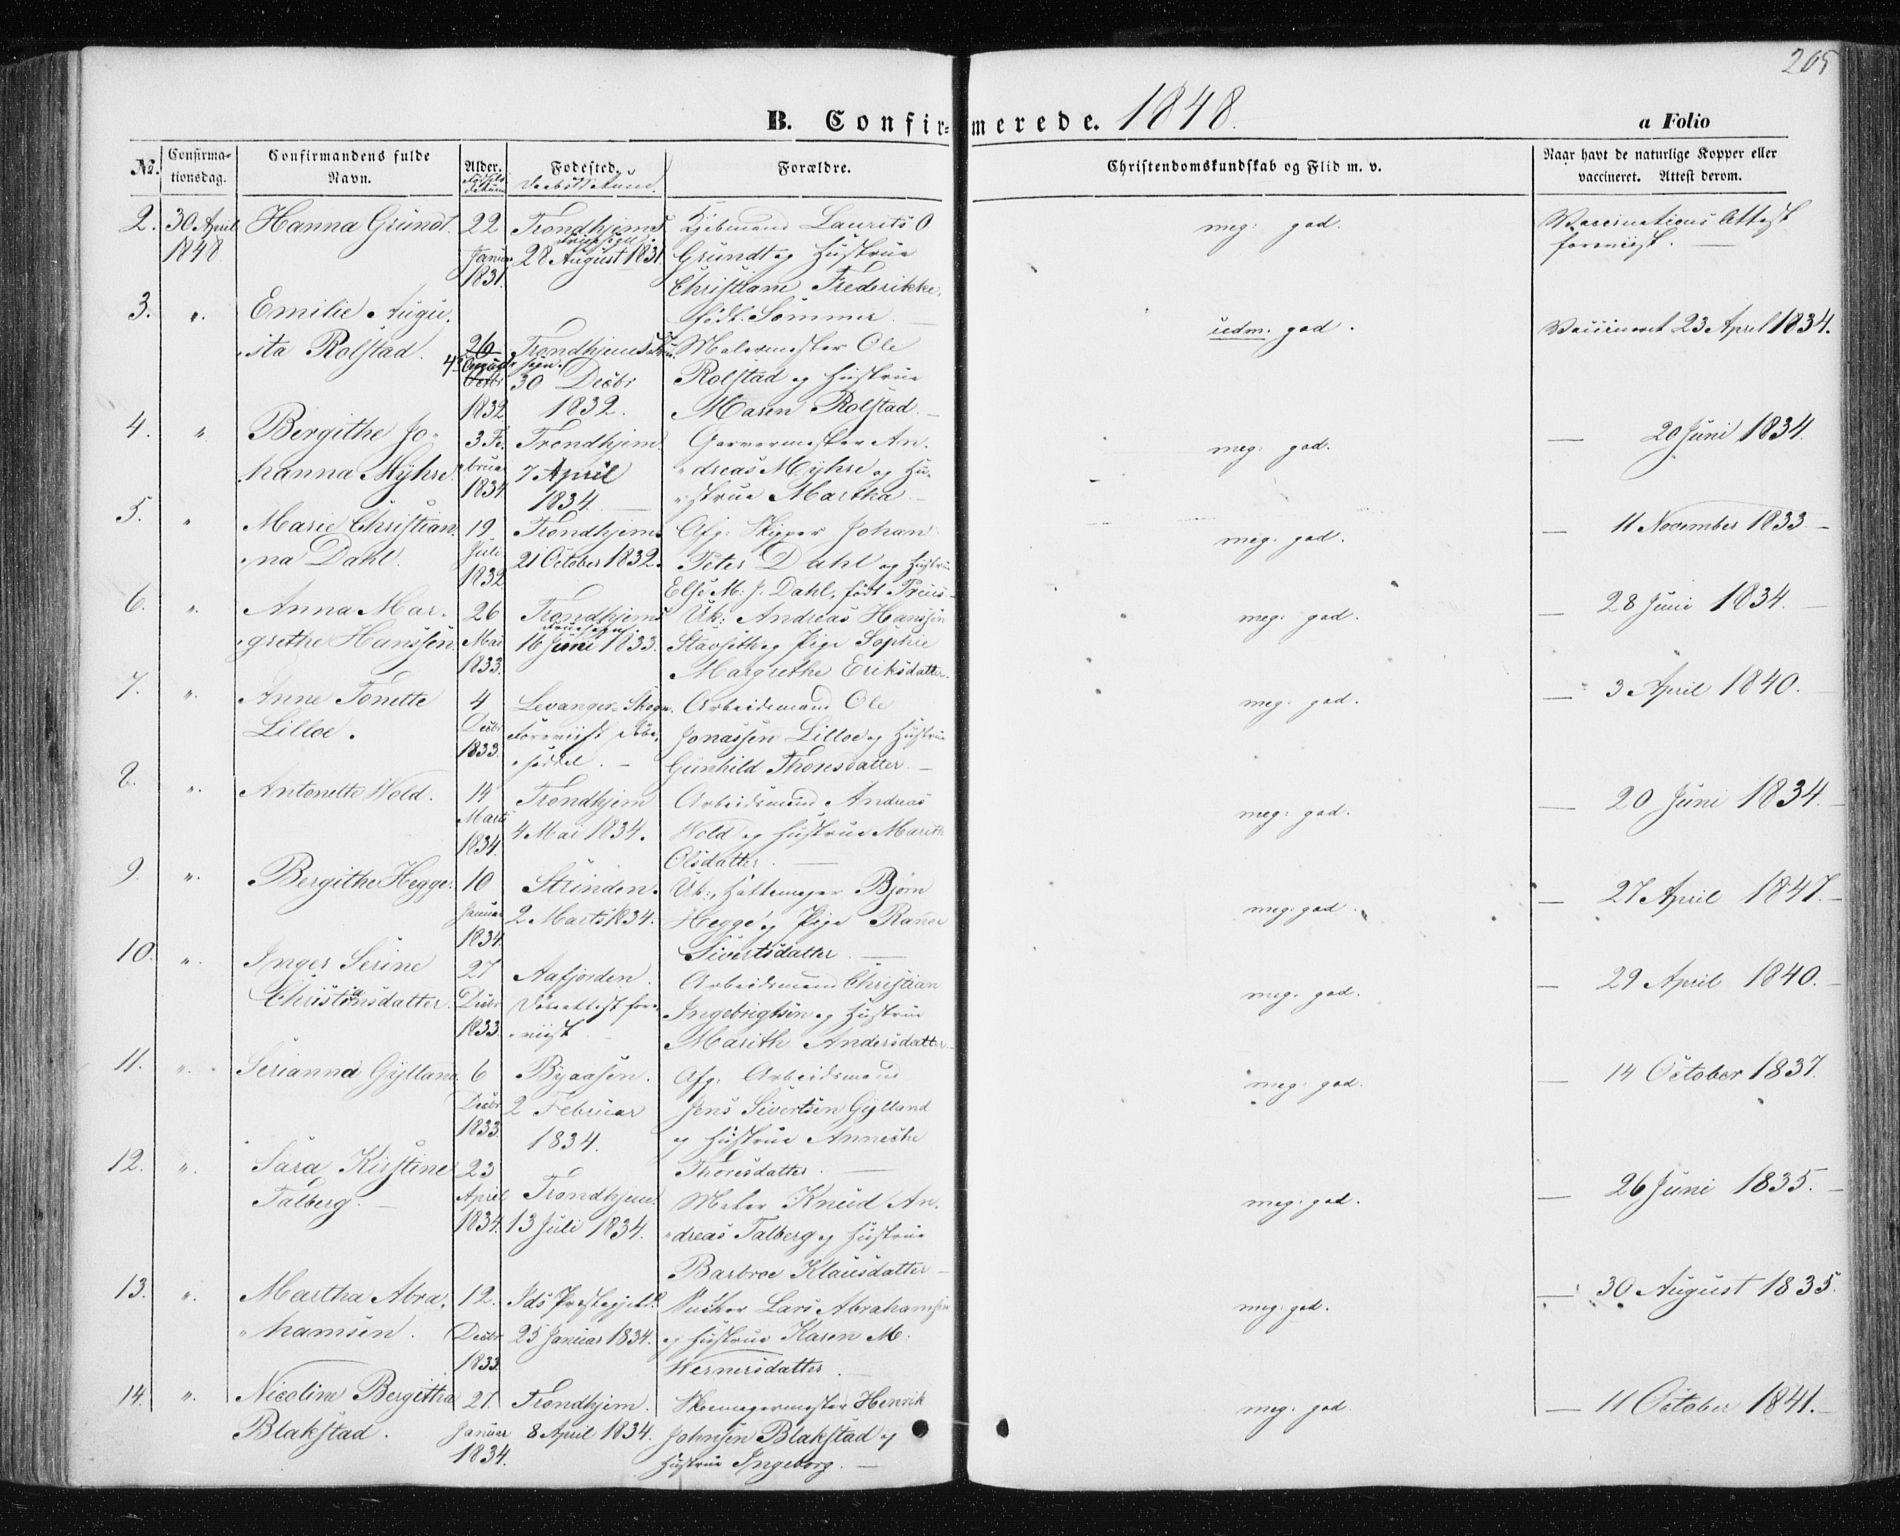 265
B. Confirmerede. 1848.
a Folio
No.
Confirmationsdag.
Confirmandens fulde Navn.
Alder.
Fødested.
Forældre.
Christendomskundskab og Flid m. v.
Naar havt de naturlige Kopper eller vaccineret. Attest derom.
2. 30 April 1848 Hanna Grundt. 22 Januar 1831. Trondhjems 28 August 1831 Kjøbmand Laurits O Grundt og Hustrue Christiane Frederikke, født Sommer. meg: god. Vaccinations Attest foreviist.
3. " Emilie Augusta Rolstad. 1832 Trondhjems 30 Decbr 1832. Malermester Ole Rolstad og Hustrue Maren Rolstad. udm. god. Vaccineret 23 April 1834.
4. " Bergithe Johanna Myhre. 3 Februar 1834 Trondhjem 7 April 1834. Garvermester Andreas Myhre og Hustrue Martha meg: god. — 20 Juni 1834.
5. " Marie Christianna Dahl. 19 Juli 1832 Trondhjem 21 October 1832. Afg: Skipper Johan Peter Dahl og Hustrue Else M: J. Dahl, født Preus meg: god. — 11 November 1833
6. " Anna Margrethe Hanssen. 26 Mai 1833. Trondhjems 16 Juni 1833. Uk: Andreas Hanssen Stavseth og Pige Sophie Margrethe Eriksdatter. meg: god. — 28 Juni 1834.
7. " Anne Tonette Lilloe. 4 Decbr 1833. Levanger Skogn. Foreviist Døbeseddel. Arbeidsmand Ole Jonassen Lilloe og Hustrue Gunhild Thoresdatter. meg: god. — 3 April 1840.
8. " Antonette Wold. 14 Marts 1834. Trondhjem 4 Mai 1834. Arbeidsmand Andreas Wold og Hustrue Marith Olsdatter. meg: god. — 20 Juni 1834
9. " Bergithe Hegge. 10 Januar 1834. Strinden. 2 Marts 1834. Uk: Hattemager Bjørn Hegge og Pige Sivertsdatter. meg: god. — 27 April 1847.
10. " Inger Serine Christiansdatter. 27 Decbr 1833. Aafjorden. Døbeattest foreviist. Arbeidsmand Christian Ingebrigtsen og Hustrue Marith Andersdatter meg: god. — 29 April 1840.
11. " Serianna Gylland. 6 Decbr 1833. Byaasen. 2 Februar 1834. Afg: Arbeidsmand Jens Sivertsen Gylland og Hustrue Thoresdatter. meg: god. — 14 October 1837.
12. " Sara Kirstine Talberg. 23 April 1834. Trondhjem. 13 Juli 1834. Knud Andreas Talberg og Hustrue Barbroe Klausdatter meg: god. — 26 Juni 1835.
13. " Martha Abrahamsen. 12. Decbr 1833. Ids Præstegjeld. 25 Januar 1834. Lars Abrahamsen og Hustrue Karen M. Wernersdatter. meg: god. — 30 August 1835.
14. " Nicoline Bergitha Blakstad. 21. Januar 1834. Trondhjem. 8 April 1834. Skomagermester Henrik Johnsen Blakstad og Hustrue Ingeborg. meg: god — 11 October 1841.